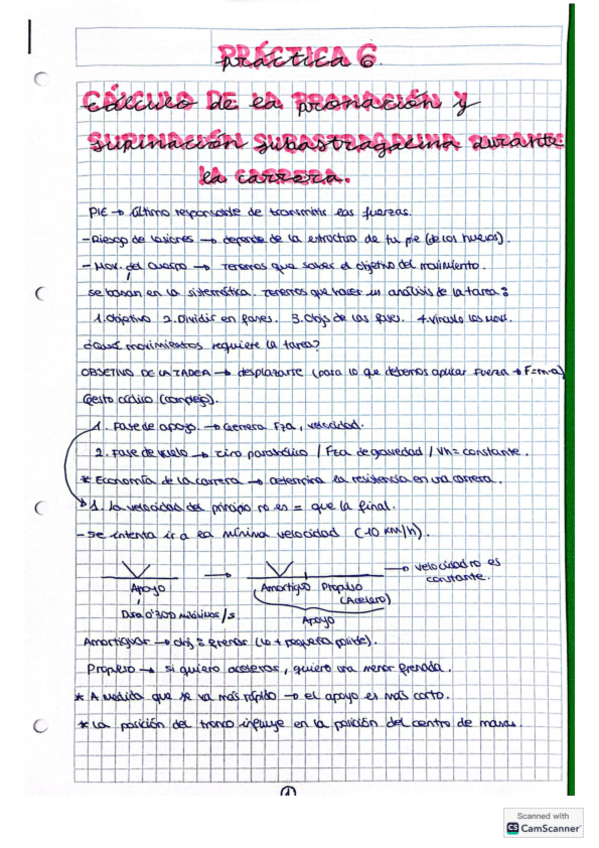 PRÁCTICA 6.
CÁLCULO DE LA PRONACIÓN Y
SUPINACIÓN SUBASTRAGALINA DURANTE
LA CARRERA.
PIE → último responsable de transmitir las fuerzas.
- Riesgo de lesiones → depende de la estructura de tu pie (de los huesos).
- Mov. del cuerpo → Tenemos que saber el objetivo del movimiento.
se basan en la sistemática. Tenemos que hacer un análisis de la tarea:
1. Objetivo 2. Dividir en fases. 3. Objs de las fases. 4. Vínculo los mov.
¿Qué movimientos requiere la tarea?
OBJETIVO DE LA TAREA → desplazarse (para lo que debemos aplicar fuerza → F=m·a)
Gesto cíclico (complejo).
1. Fase de apoyo. → Genera Fza, velocidad.
2. Fase de vuelo → tiro parabólico / Fza de gravedad / Vh = constante.
* Economía de la carrera → determina la resistencia en una carrera.
1. La velocidad del principio no es = que la final.
- se intenta ir a la mínima velocidad (~10 km/h).
→ velocidad no es
constante.
Apoyo → Amortiguo Propulso
(Acelero)
Dura 0'300 /s.
Apoyo
Amortiguar → obj: frenar (lo + pequeña posible).
Propulso → si quiero acelerar, quiero una menor frenada.
* A medida que se va más rápido → el apoyo es más corto.
* La posición del tronco influye en la posición del centro de masas.
1
Scanned with
CS CamScanner